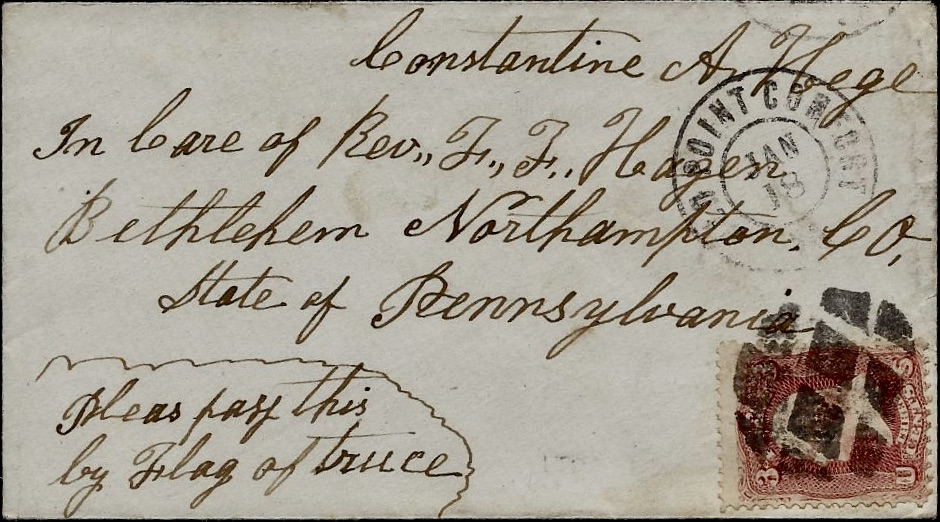 Constantine A, Hege
In Care of Rev., F., F., Hagen,
Bethlehem Northampton, CO,
State of Pennsylvania
Pleas pass this
by Flag of truce
POINT COMFORT
JAN
18
3
U